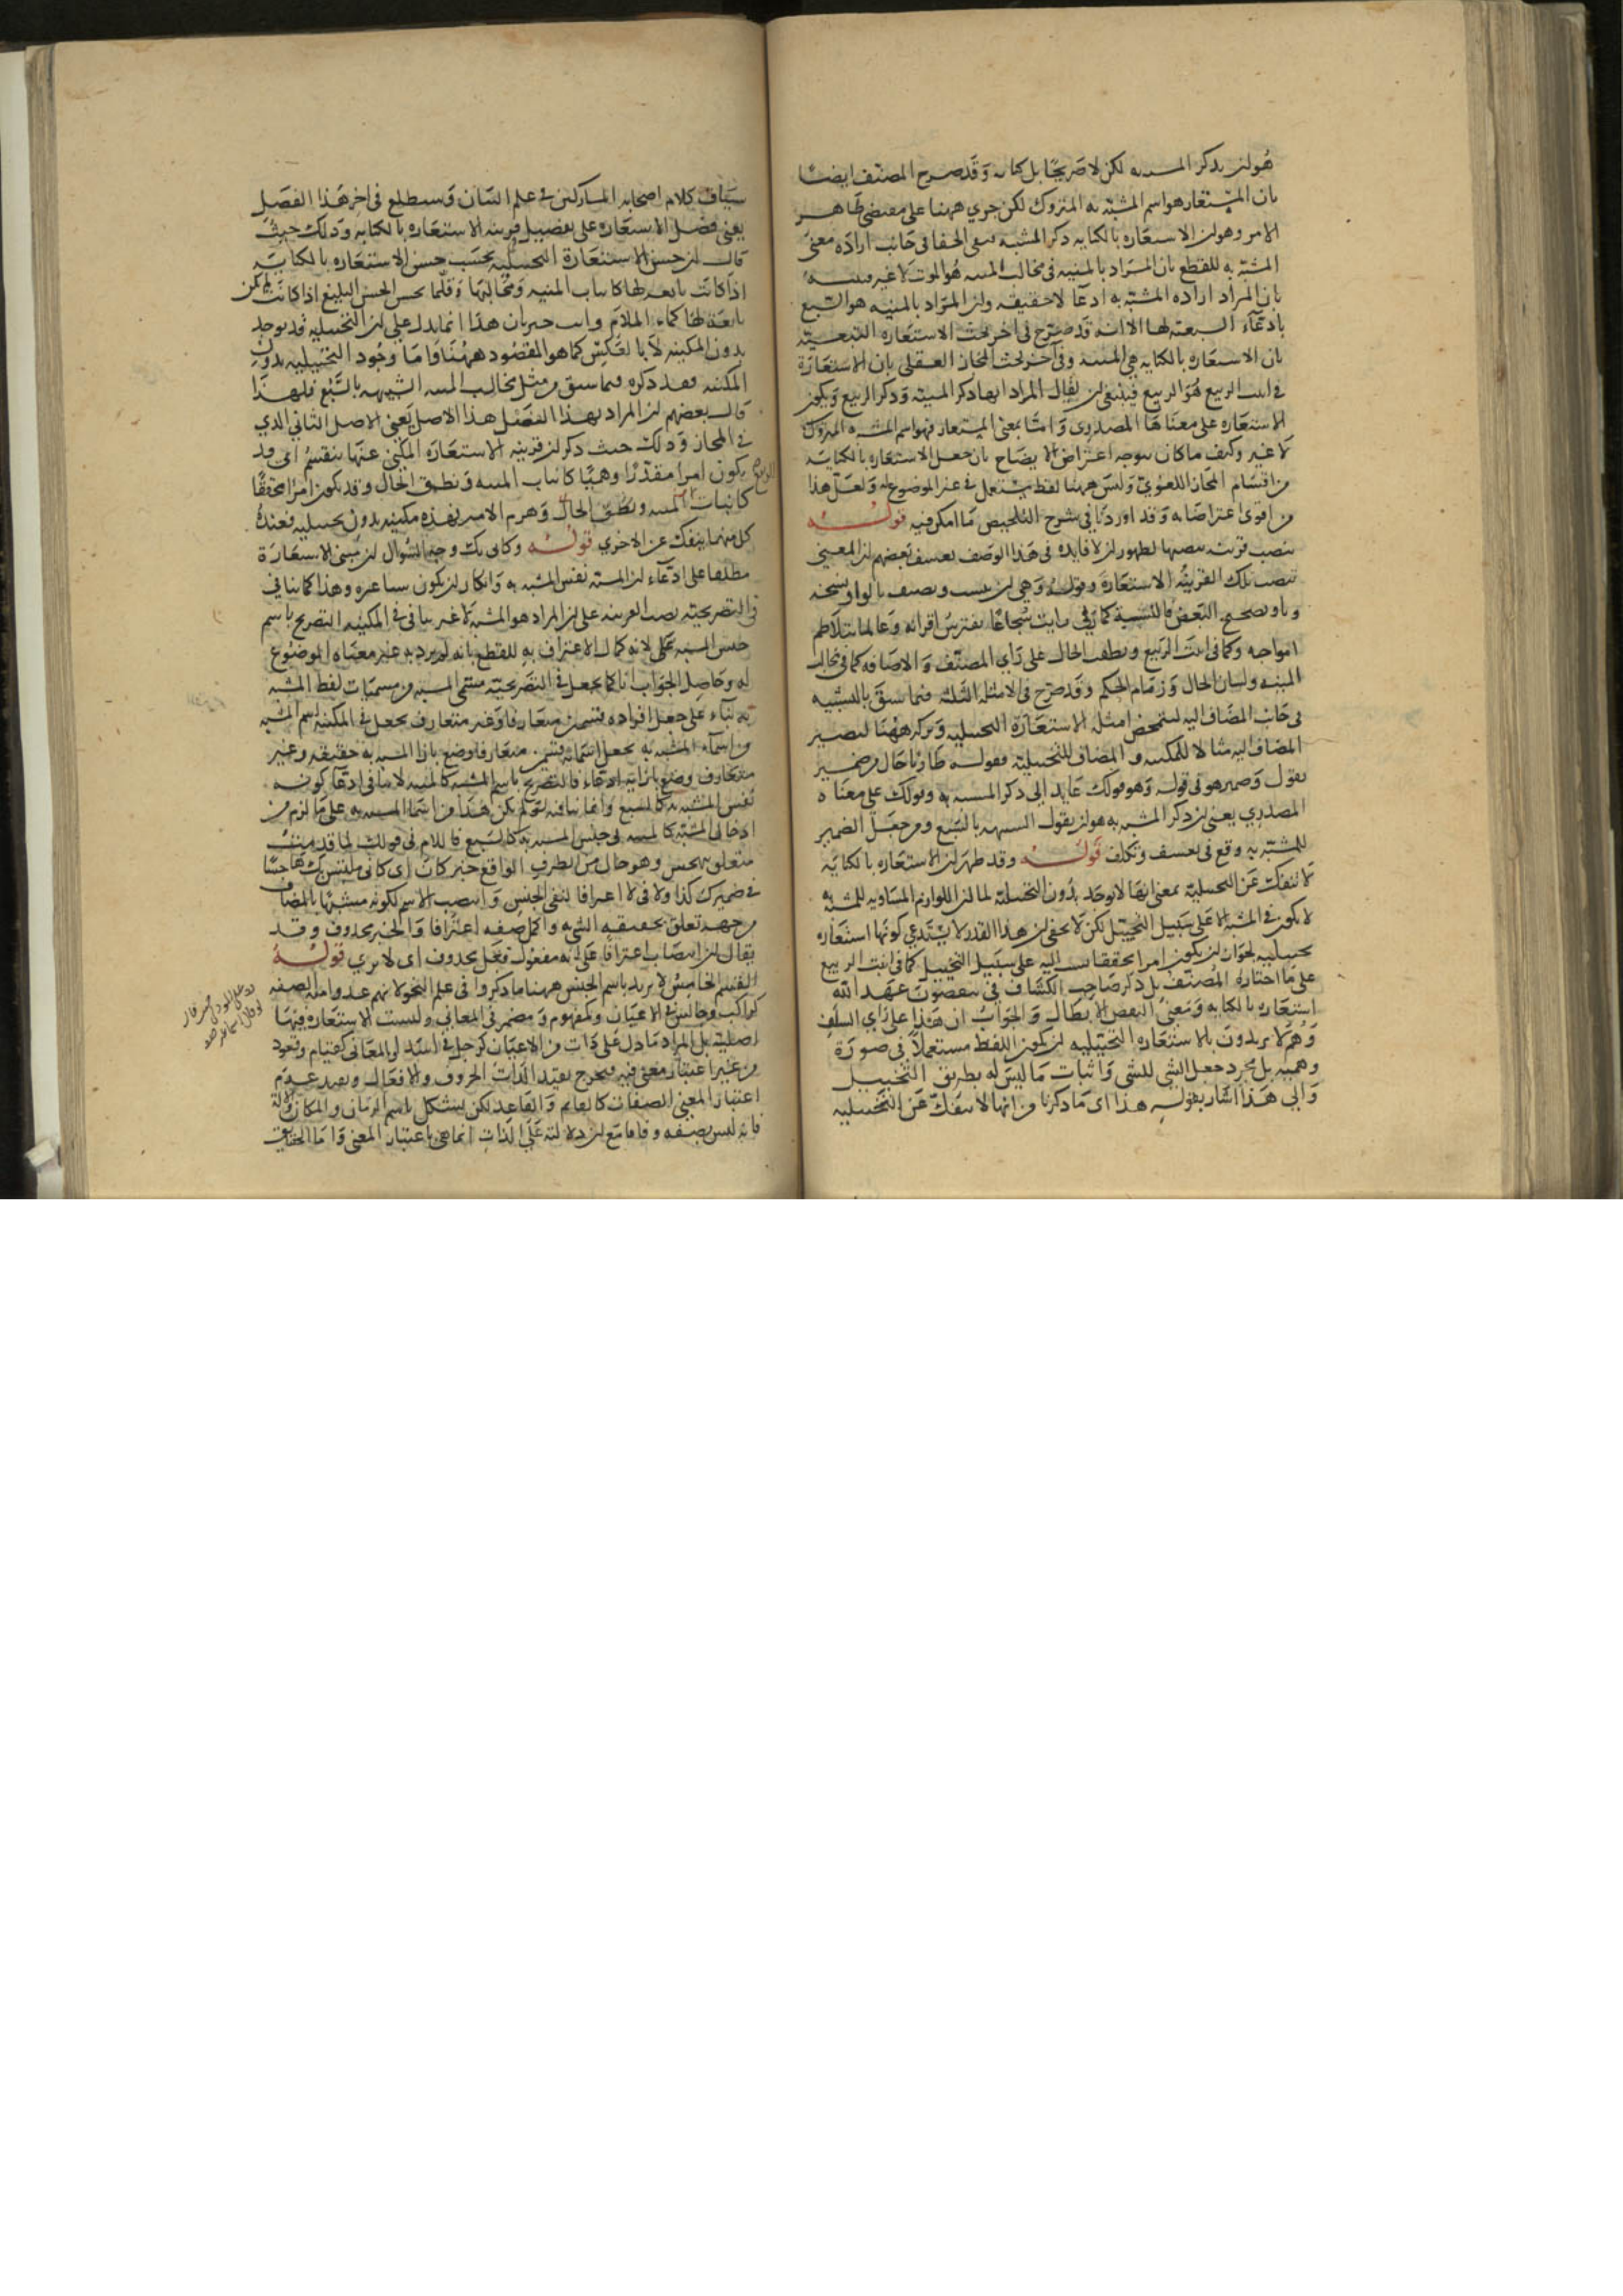 هو ان يذكر المشبه به لكن لا صريحا بل كناية وقد صرح المصنف ايضا
بان المستعار هو اسم المشبه به المتروك لكن جرى ههنا على مقتضى ظاهر
الامر وهو ان الاستعارة بالكناية ذكر المشبه بقى الخفا فى جانب ارادة معنى
المشبه به للقطع بان المراد بالمنية فى مخالب المنية هو الموت لا غير
بان المراد ارادة المشبه به ادعا لا حقيقة وان المراد بالمنية هو السبع
بادعاء السبعية لها الا انه قد صرح فى اخر بحث الاستعارة التبعية
بان الاستعارة بالكناية هى المنية وفى آخر بحث المجاز العقلى بان الاستعارة
فى انبت الربيع هو الربيع فينبغى ان يقال المراد انها ذكر المنية وذكر الربيع ويكون
الاستعارة على معناها المصدرى واما بمعنى المستعار فهو اسم المشبه به المتروك
لا غير وكيف ما كان يتوجه اعتراض الايضاح بان جعل الاستعارة بالكناية
من اقسام المجاز اللغوى وليس ههنا لفظ يستعمل فى غير الموضوع له ولعل هذا
من اقوى اعتراضاته وقد اوردنا فى شرح التلخيص ما امكن فيه قوله
بنصب قرينة بنصبها لظهور ان لا فايدة فى هذا الوصف تعسف بعضهم ان المعنى
بنصب تلك القرينة الاستعارة وقوله وهى ان ينسب ويضيف بالواو نسخة
وباو تصحيح البعض فالنسبة كما فى رايت شجاعا يفترس اقرانه وعالما يتلاطم
امواجه وكما فى انبت الربيع ونطقت الحال على راى المصنف والاضافة كما فى مخالب
المنية ولسان الحال وزمام الحكم وقد صرح فى الامثلة الثلثة فيما سبق بالتشبيه
فى جانب المضاف اليه لتمحض امثلة الاستعارة التخييلية وتركه ههنا ليصير
المضاف اليه مثالا للمكنية والمضاف للتخييلية فقوله طاويا حال من ضمير
يقول وضمير هو فى قوله وهو قولك عايد الى ذكر المشبه به وقولك على معناه
المصدرى يعنى ان ذكر المشبه به هو ان يقول الشبيهة بالسبع ومن جعل الضمير
للمشبه به وقع فى تعسف وتكلف قوله وقد ظهر ان الاستعارة بالكناية
لا تنفك عن التخييلية بمعنى انها لا توجد بدون التخييلية لما ان اللوازم المساوية للمشبه به
لا يكون فى المشبه الا على سبيل التخييل لكن لا يخفى ان هذا القدر لا يستدعى كونها استعارة
تخييلية لجواز ان يكون امرا محققا نسب اليه على سبيل التخييل كما فى انبت الربيع
على ما اختاره المصنف بل ذكر صاحب الكشاف فى ينقضون عهد الله
استعارة بالكناية ومعنى النقض الابطال والجواب ان هذا على راى السلف
وهم لا يريدون بالاستعارة التخييلية ان يكون اللفظ مستعملا فى صورة
وهمية بل مجرد جعل الشى للشى واثبات ما ليس له بطريق التخييل
والى هذا اشار بقوله هذا اى ما ذكرنا من انها لا تنفك عن التخييلية
سياق كلام اصحابه المشاركين فى علم البيان وستطلع فى اخر هذا الفصل
يعنى فصل الاستعارة على تفصيل قرينة الاستعارة بالكناية وذلك حيث
قال ان حسن الاستعارة التخييلية بحسب حسن الاستعارة بالكناية
اذا كانت تابعة لها كانياب المنية ومخالبها وقلما تحسن الحسن البليغ اذا كانت لم تكن
تابعة لها كماء الملام وانت خبير بان هذا انما يدل على ان التخييلية قد توجد
بدون المكنية لا بالعكس كما هو المقصود ههنا واما وجود التخييلية بدون
المكنية فقد ذكره فيما سبق من مثل مخالب المنية الشبيهة بالسبع فلهذا
قال بعضهم ان المراد بهذا الفصل هذا الاصل يعنى الاصل الثانى الذى
فى المجاز وذلك حيث ذكر ان قرينة الاستعارة المكنى عنها ينقسم اى قد
يكون امرا مقدرا وهميا كانياب المنية ونطق الحال وقد يكون امرا محققا
كانبات الربيع ونطق الحال وهزم الامير فهذه مكنية بدون تخييلية فعنده
كل منهما ينفك عن الاخرى قوله وكانى بك وجه السؤال ان مبنى الاستعارة
مطلقا على ادعاء ان المشبه نفس المشبه به وانكار ان يكون شيئا غيره وهذا كما ينافى
فى التصريحية نصب القرينة على ان المراد هو المشبه لا غير ينافى فى المكنية التصريح باسم
جنس المشبه لانه كمال الاعتراف به للقطع بانه لم يرد به غير معناه الموضوع
له وحاصل الجواب انا كما نجعل فى التصريحية مسمى المشبه من مسميات لفظ المشبه
به بناء على جعل افراده قسمين متعارفا وغير متعارف نجعل فى المكنية اسم المشبه
من اسماء المشبه به بجعل اسمائه قسمين متعارفا وضع بازا المشبه به حقيقة وغير
متعارف وضع بازايه ادعاء فالتصريح باسم المشبه كالمنية لا ينافى ادعا كونه
نفس المشبه به كالسبع وانما ينافيه لو لم يكن هذا من اسما المشبه به على ما لزم من
ادخال المشبه كالمنية فى جنس المشبه به كالسبع فاللام فى قولك لما قد
متعلق بهجس وهو حال من الظرف الواقع خبر كان اى كانى ملتبس بك هاجسا
فى ضميرك كذا ولا فى لا اعترافا لنفى الجنس وانتصب الاسم لكونه مشبها بالمضاف
من جهة تعلق بحقيقة الشى به واكمل صفة اعترافا والخبر محذوف وقد
يقال ان انتصاب اعترافا على انه مفعول فعل محذوف اى لا نرى قوله
القسم الخامس لا يريد باسم الجنس ههنا ما ذكروا فى علم النحو لانهم عدوا منه الصفة
كراكب وجالس فى الاعيان وكمفهوم ومضمر فى المعانى وليست الاستعارة فيها
اصلية بل المراد ما دل على ذات من الاعيان كرجل واسد او المعانى كقيام وقعود
من غير اعتبار معنى فيه فيخرج بقيد الذات الحروف والافعال وبقيد عدم
اعتبار المعنى الصفات كالقايم والقاعد لكن يستشكل باسم الزمان والمكان والالة
فانه ليس بصفة وفاقا مع ان دلالته على الذات انما هى باعتبار المعنى واما الحقايق